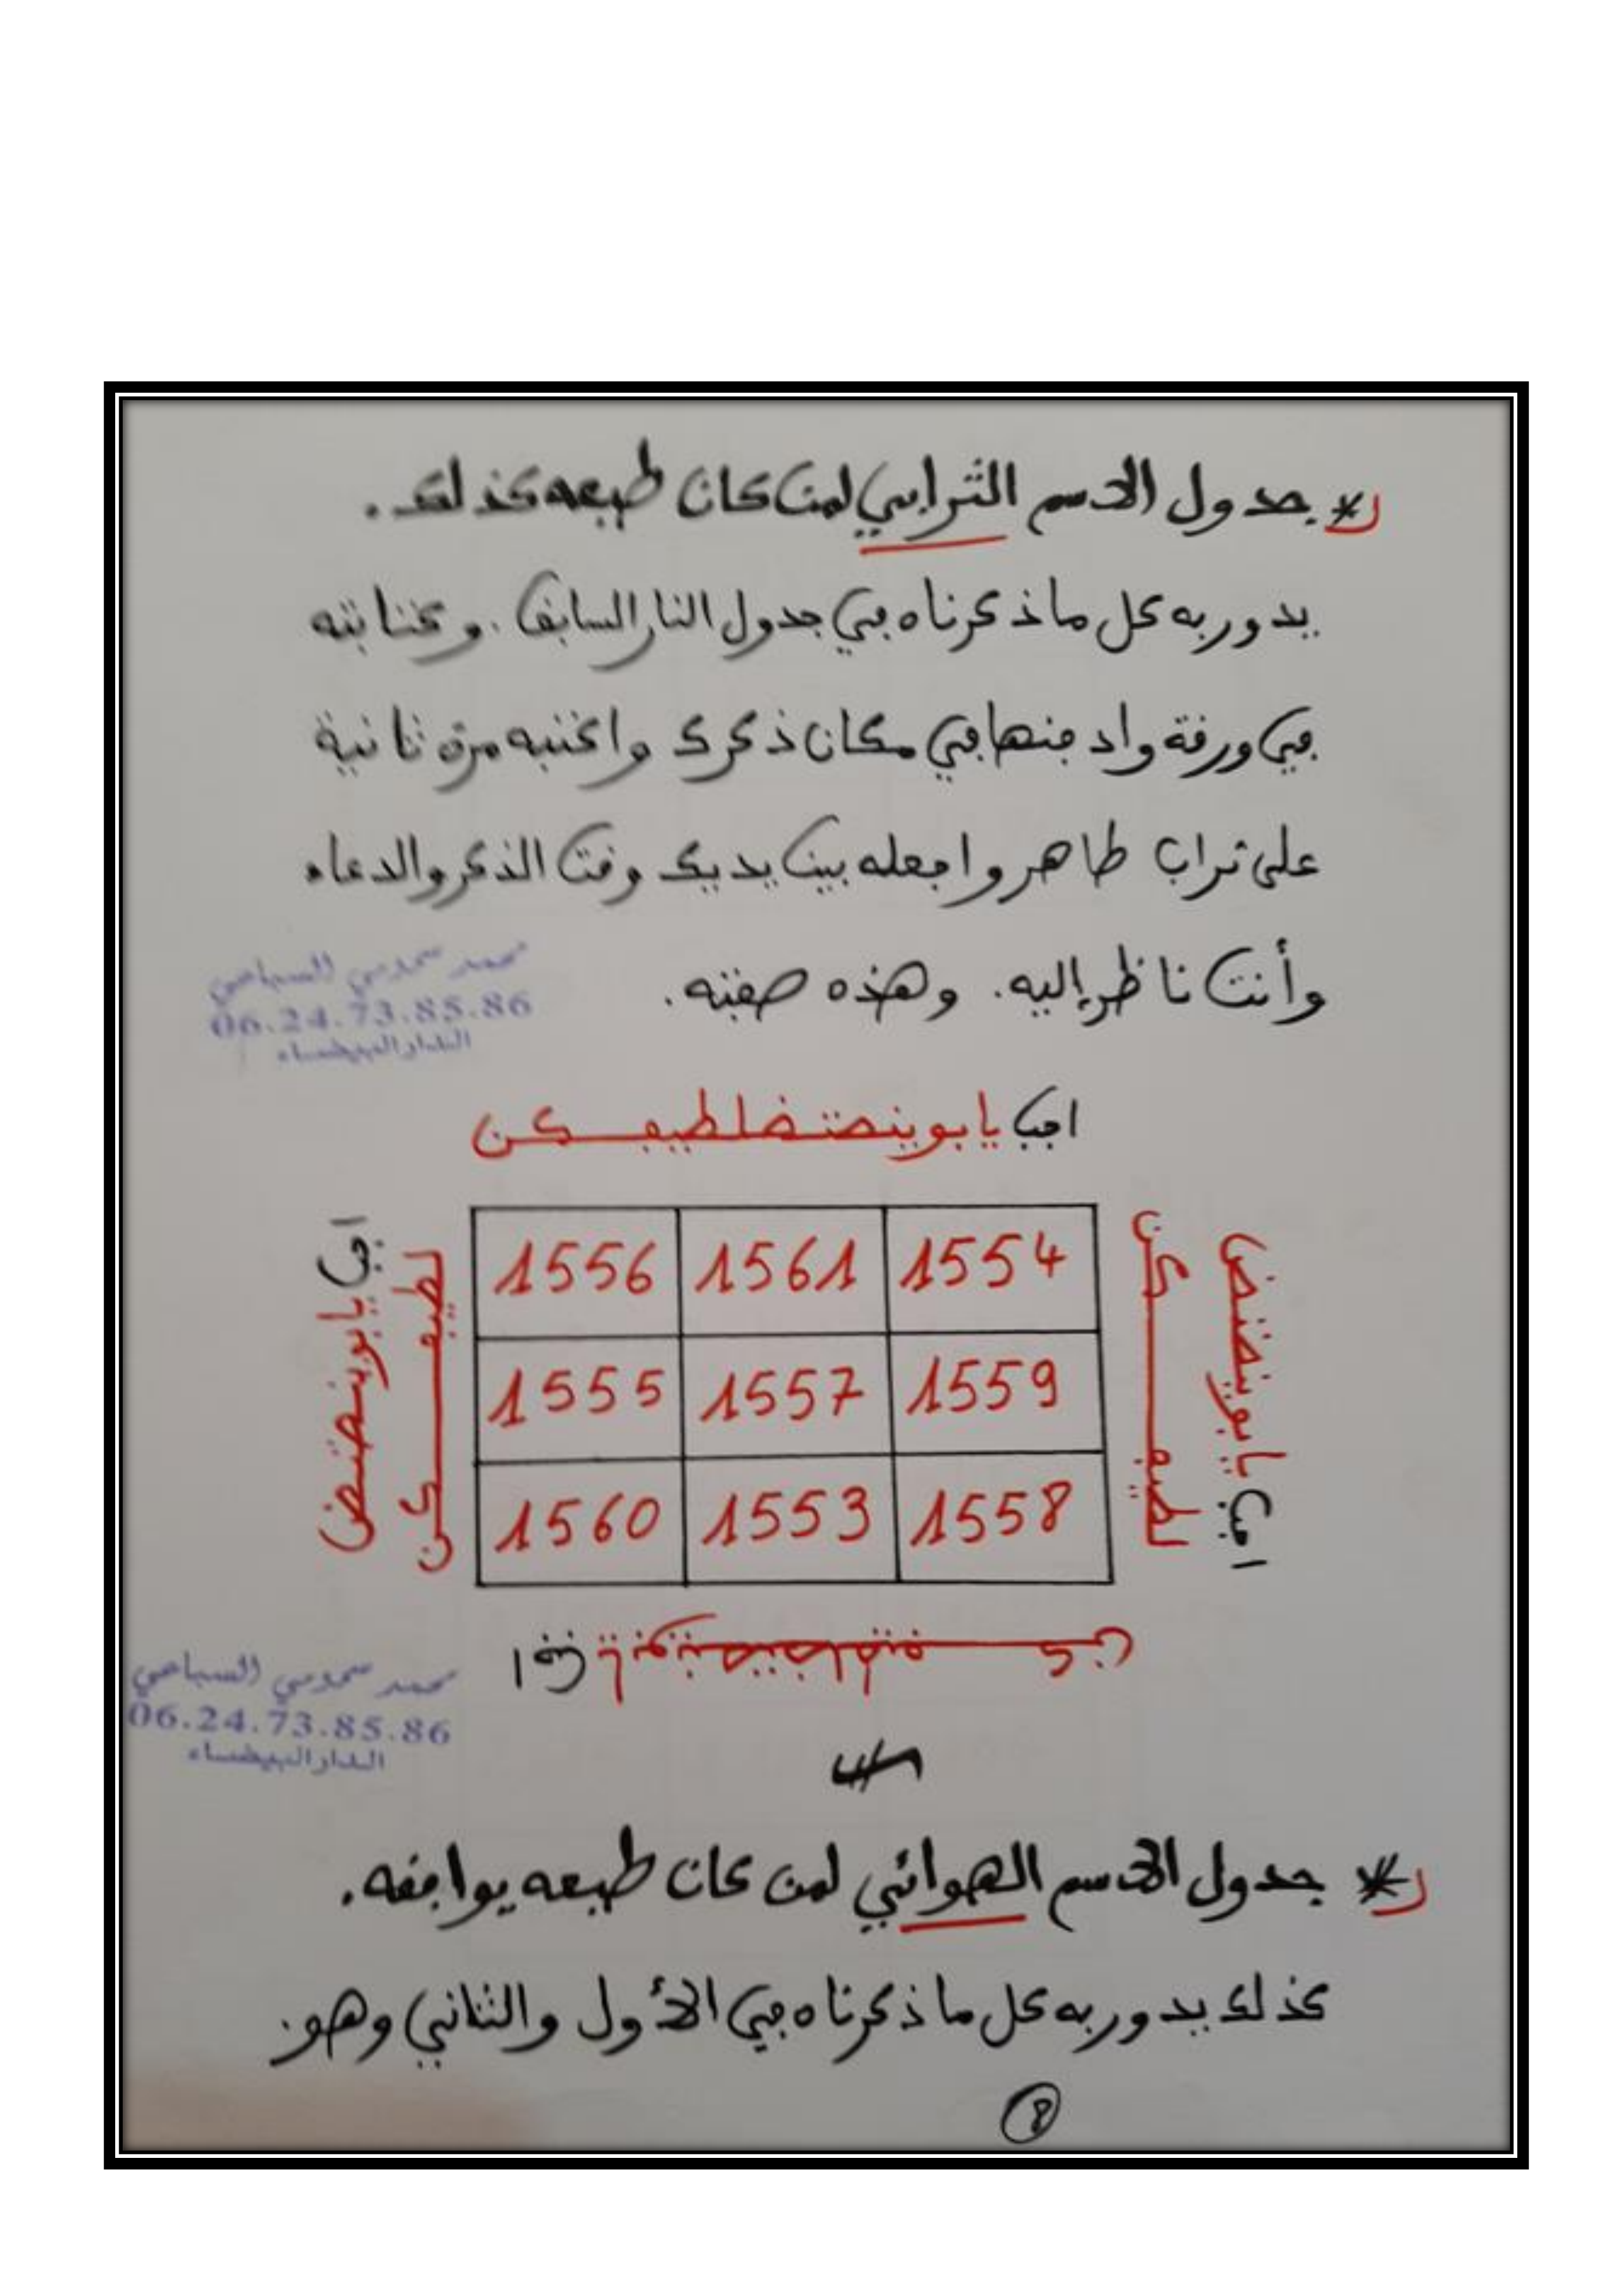 * جدول الاسم الترابي لمن كان طبعه كذلك.
يدور به كل ما ذكرناه في جدول النار السابق. وكتابته
في ورقة واد فنها في مكان ذكرك واكتبه مرة ثانية
على تراب طاهر واجعله بين يديك وقت الذكر والدعاء
وأنت ناظر إليه. وهذه صفته.
محمد السباعي
06.24.73.85.86
الدار البيضاء
اجب يا
كن
1556 1561 1554
1555 1557 1559
1560 1553 1558
اجب يا
كن
اجب يا
كن
محمد السباعي
06.24.73.85.86
الدار البيضاء
* جدول الاسم الهوائي لمن كان طبعه يوافقه.
كذلك يدور به كل ما ذكرناه في الأول والثاني وهو.
8